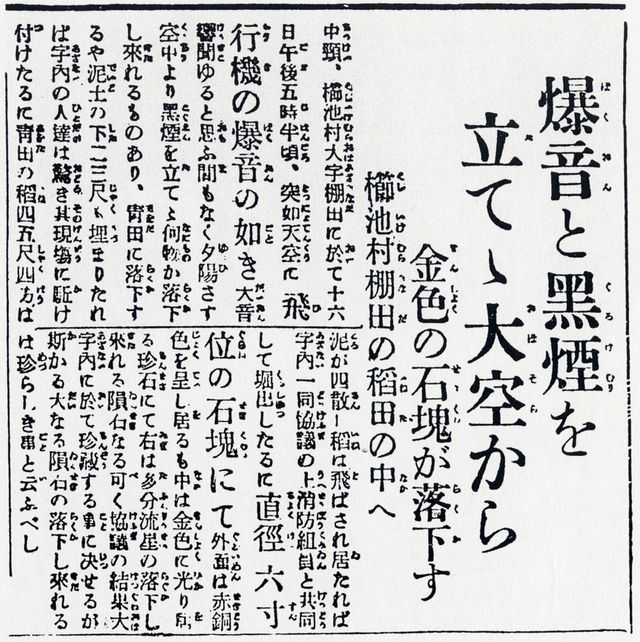 爆音と黑煙を
立てゝ大空から
金色の石塊が落下す
櫛池村棚田の稻田の中へ
中頸、櫛池村大字棚田に於て十六
日午後五時半頃、突如天空に飛
行機の爆音の如き大音
響聞ゆると思ふ間もなく夕陽さす
空中より黑煙を立てゝ何物か落下
し來れるものあり、靑田に落下す
るや泥土の下二三尺も埋まりたれ
ば字內の人達は驚き其現塲に駈け
付けたるに靑田の稻四五尺四方ば
泥が四散し稻は飛ばされ居たれば
字內一同協議の上消防組員と共同
して堀出したるに直徑六寸
位の石塊にて外面は赤銅
色を呈し居るも中は金色に光り居
る珍石にて右は多分流星の落下し
來れる隕石なる可く協議の結果大
字內に於て珍藏する事に决せるが
斯かる大なる隕石の落下し來れる
は珍らしき事と云ふべし